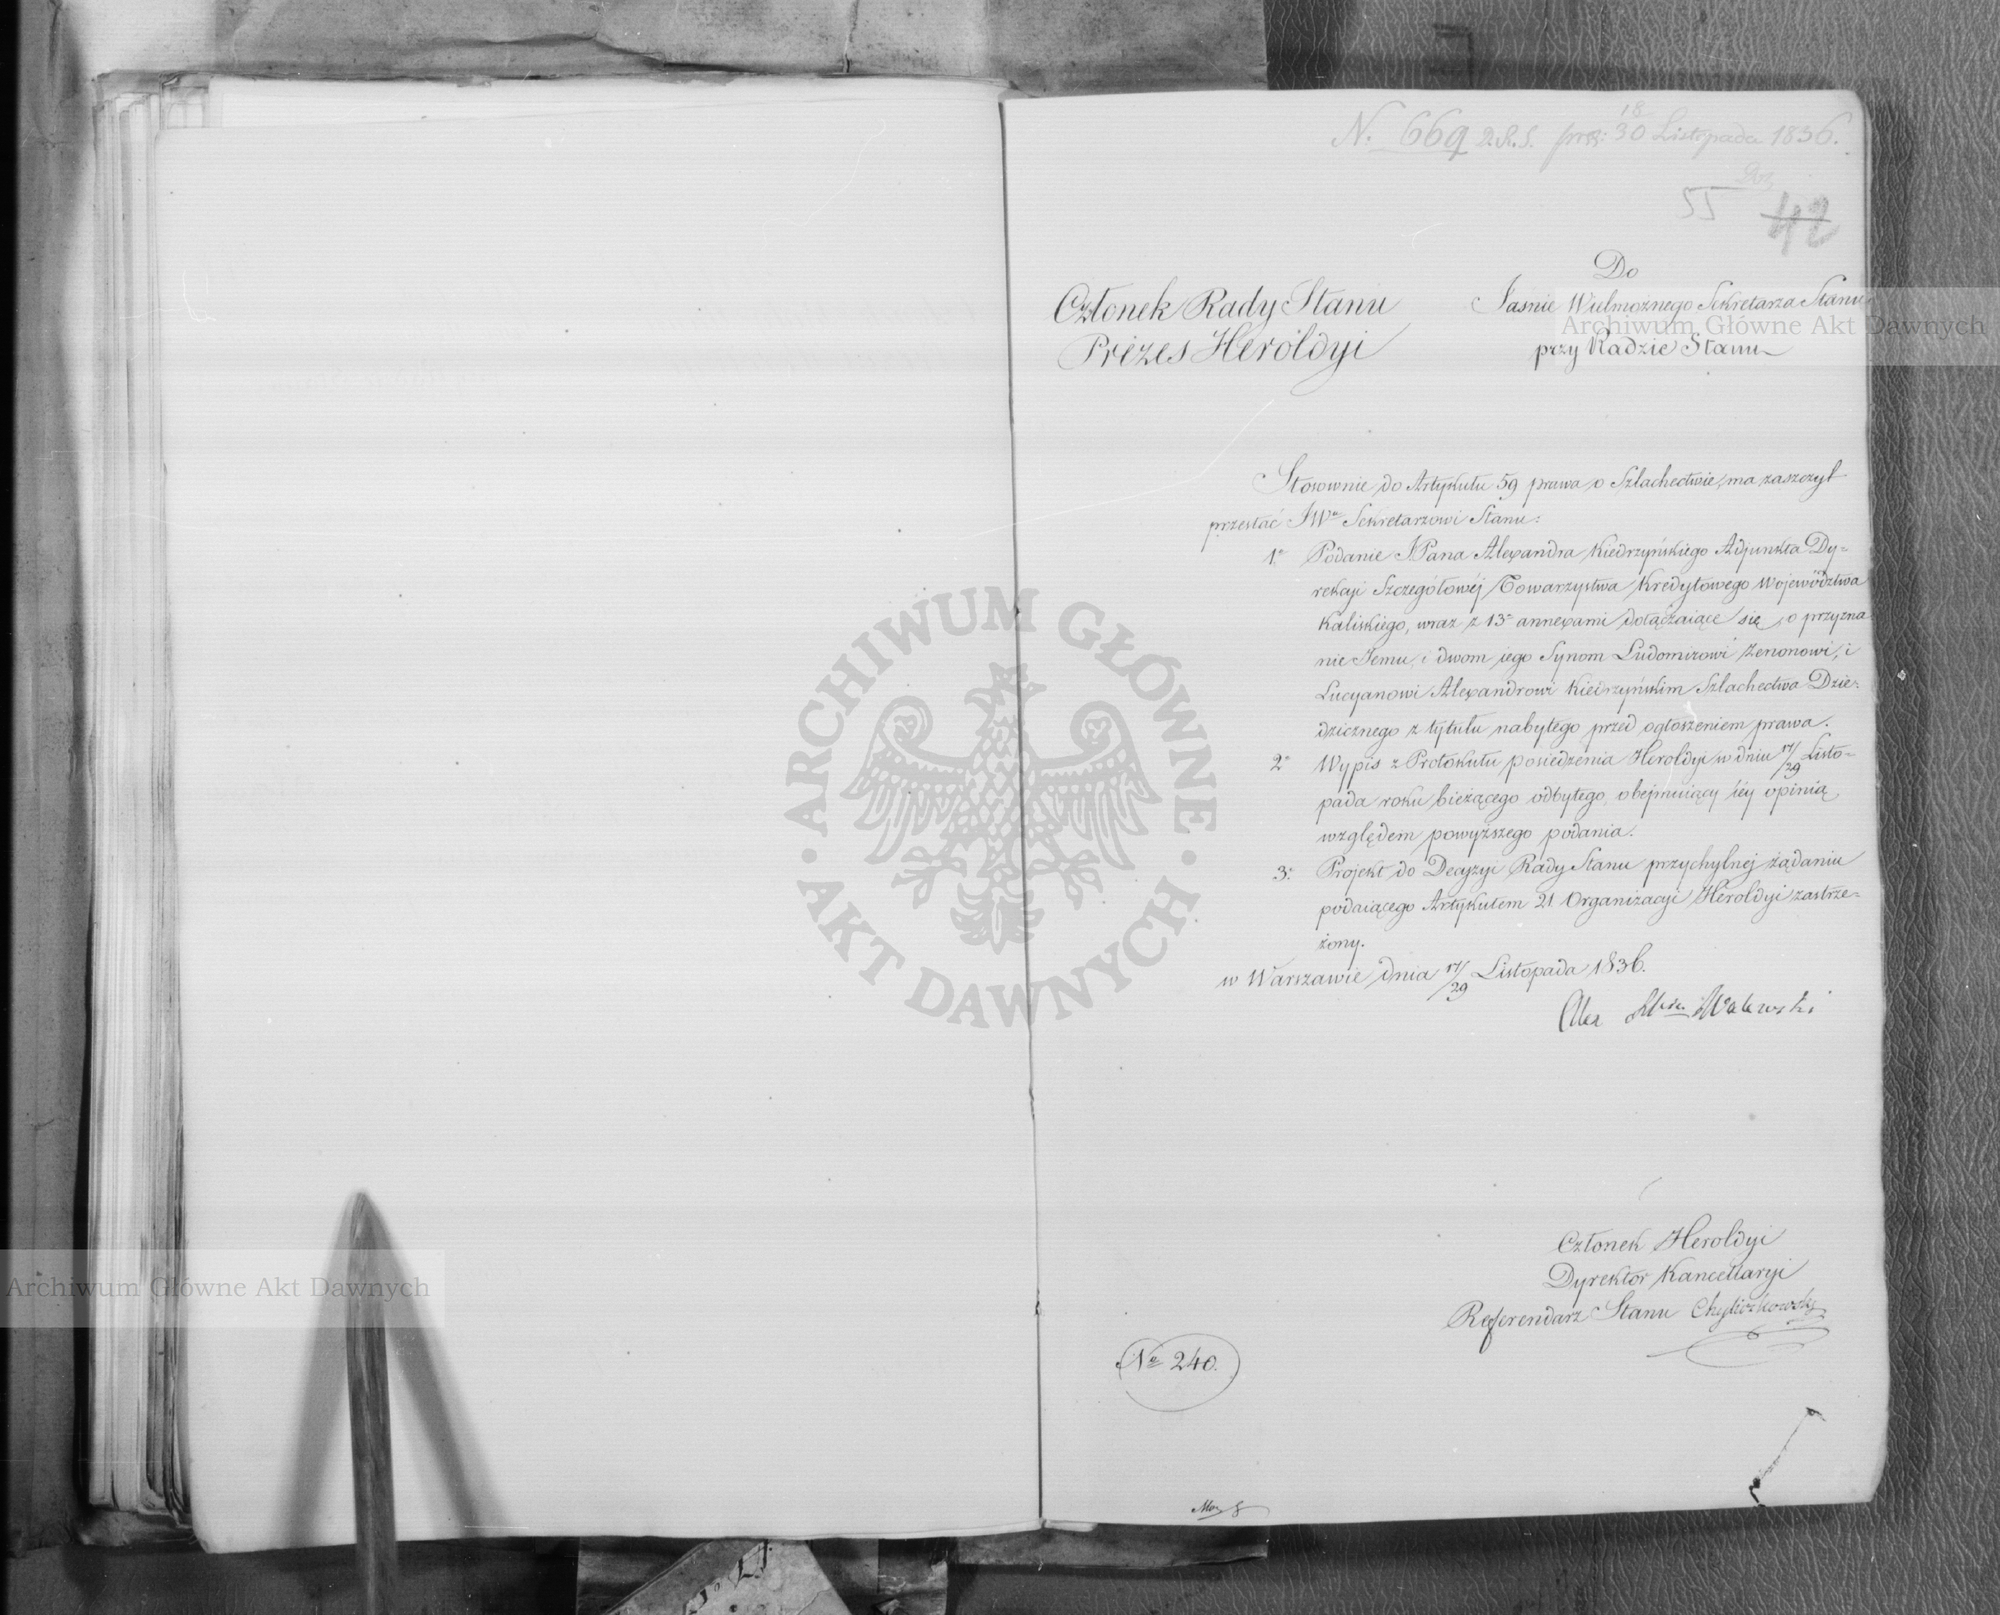 N. 669 D.R.S. prez: 18/30 Listopada 1836.
55 42
Członek Rady Stanu
Prezes Heroldyi
Do
Jaśnie Wielmożnego Sekretarza Stanu
przy Radzie Stanu
Stosownie do Artykułu 59 prawa o Szlachectwie, ma zaszczyt
przesłać JWu Sekretarzowi Stanu:
1. Podanie JPana Alexandra Kiedrzyńskiego Adjunkta Dy-
rekcji Szczegółowéj Towarzystwa Kredytowego Województwa
Kaliskiego, wraz z 13 annexami dołączaiące się, o przyzna-
nie Jemu, i dwom iego Synom Ludomirowi Zenonowi, i
Lucyanowi Alexandrowi Kiedrzyńskim Szlachectwa Dzie-
dzicznego z tytułu nabytego przed ogłoszeniem prawa.
2. Wypis z Protokułu posiedzenia Heroldyi w dniu 17/29 Listo-
pada roku bieżącego odbytego, obejmuiący iéy opinią
względem powyższego podania.
3. Projekt do Decyzyi Rady Stanu przychylnej żądaniu
podaiącego Artykułem 21 Organizacyi Heroldyi zastrze-
żony.
w Warszawie dnia 17/29 Listopada 1836.
Alex Walewski
Członek Heroldyi
Dyrektor Kancellaryi
Referendarz Stanu Chyliczkowski
No 240.
ARCHIWUM GŁÓWNE AKT DAWNYCH
Archiwum Główne Akt Dawnych
Archiwum Główne Akt Dawnych